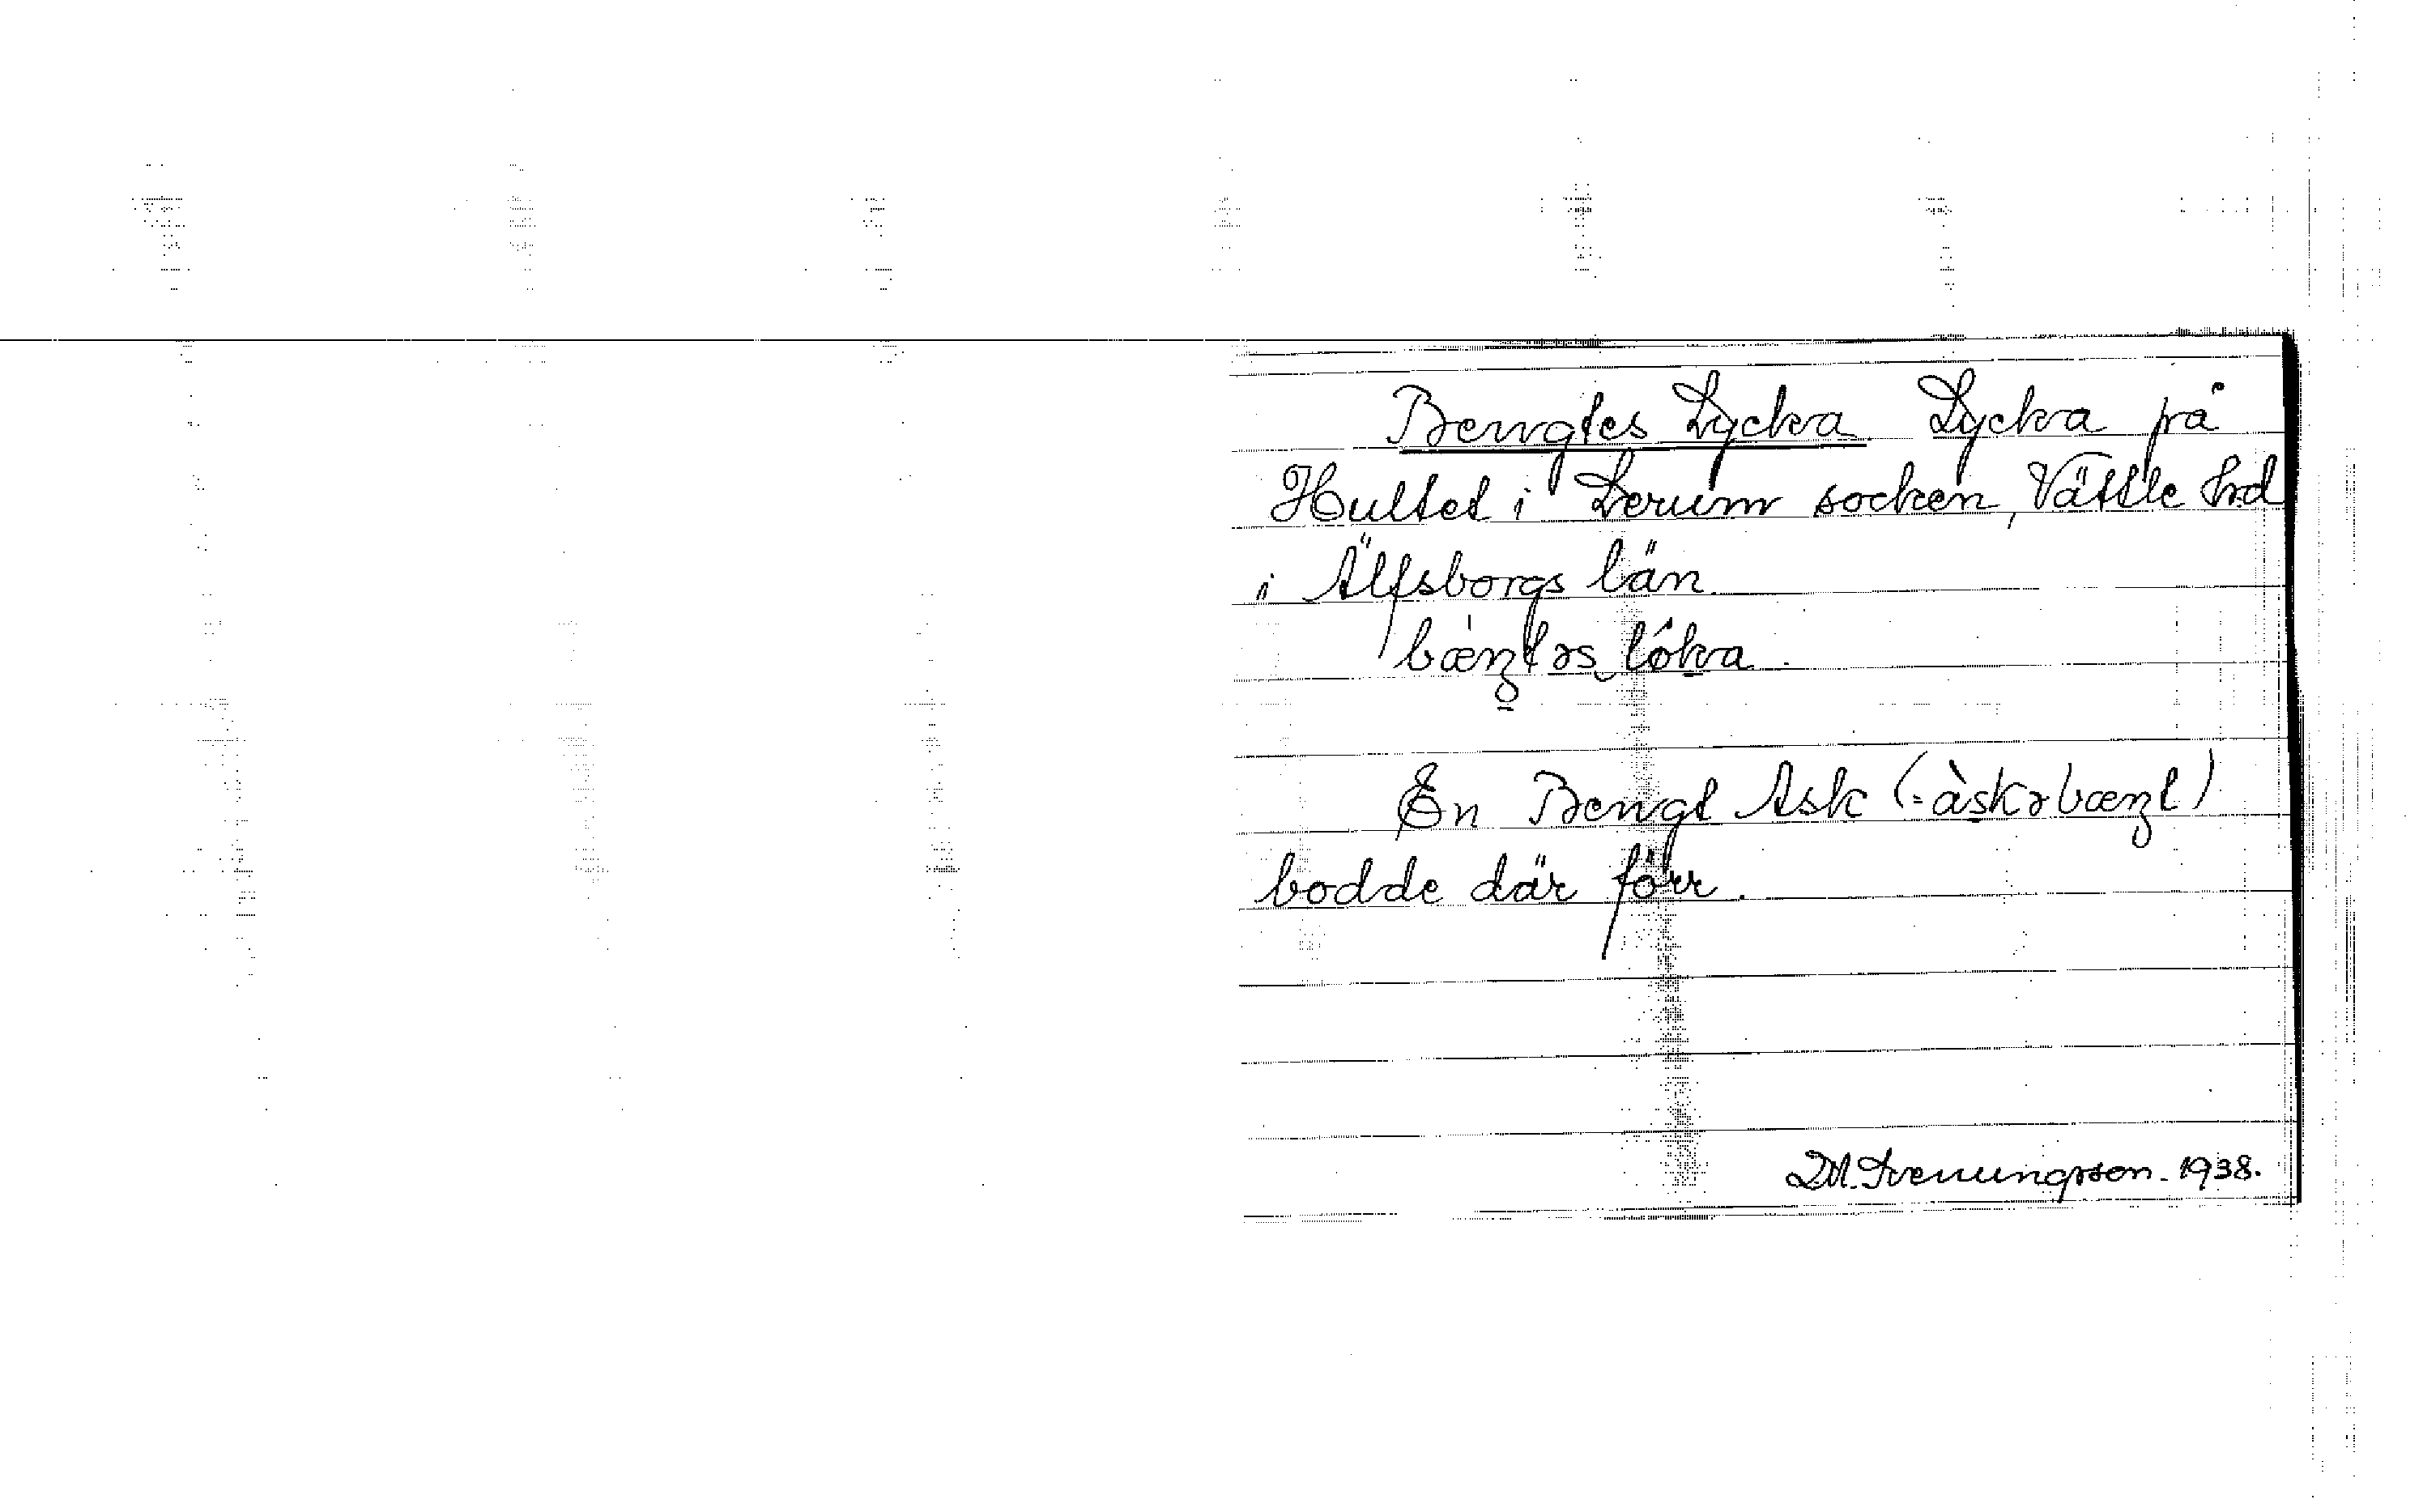 Bengtes Lycka Lycka på
Hultet i Lerum socken, Vättle hd
i Älfsborgs län
bæŋtəs lóka.
En Bengt Ask (=àskəbæŋt)
bodde där förr.
D.A. Svenungsson. 1938.